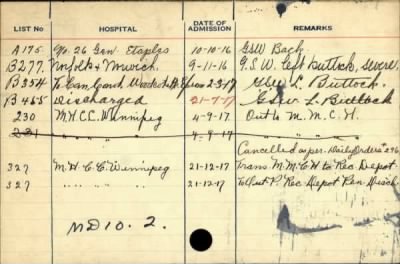 LIST No HOSPITAL DATE OF ADMISSION REMARKS
A175 No. 26 Gen. Etaples 10-10-16 GSW Back
B277 Norfolk & Norwich 9-11-16 G.S.W. Left buttock, severe
B354 To Can. Conv. Woodcote Pk Epsom 2-3-17 GSW L. Buttock
B465 Discharged 21-7-17 GSW L. Buttock
230 M.H.C.C. Winnipeg 4-9-17 Out to M. M. C. H.
231 " " " 4-9-17
Cancelled as per Daily Orders # 296
327 M.H.C.C. Winnipeg 21-12-17 Trans M.M.C.H to Rec. Depot
327 " " " 21-12-17 Rec Depot Disch
MD 10. 2.